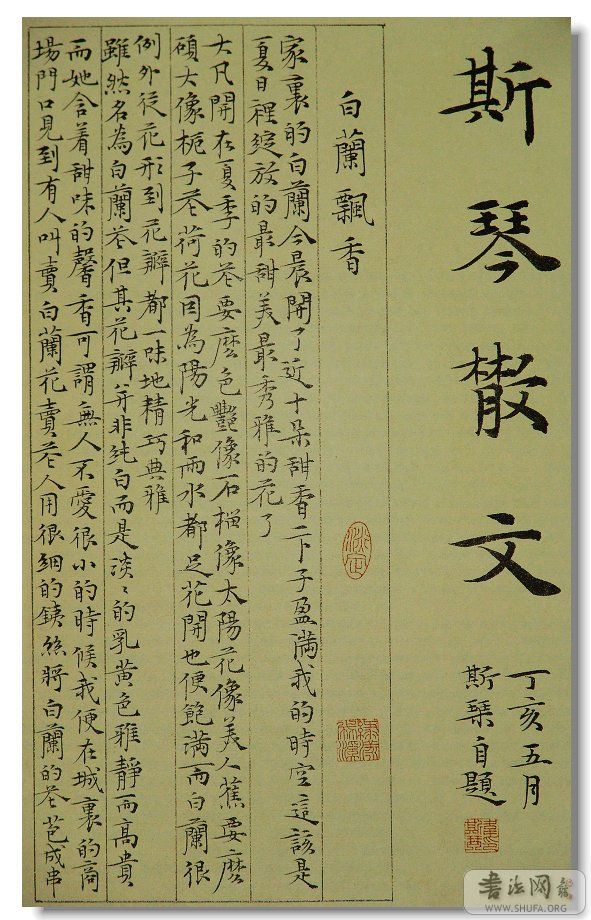 斯琴散文
丁亥五月
斯琴自題
白蘭飄香
家裏的白蘭今晨開了近十朵甜香一下子盈滿我的時空這該是
夏日裡綻放的最甜美最秀雅的花了
大凡開在夏季的花要麼色艷像石榴像太陽花像美人蕉要麼
碩大像梔子花荷花因為陽光和雨水都足花開也便飽滿而白蘭很
例外從花形到花瓣都一味地精巧典雅
雖然名為白蘭花但其花瓣并非純白而是淡淡的乳黃色雅靜而高貴
而她含着甜味的馨香可謂無人不愛很小的時候我便在城裏的商
場門口見到有人叫賣白蘭花賣花人用很細的銕絲將白蘭的花苞成串
書法网
WWW.SHUFA.ORG